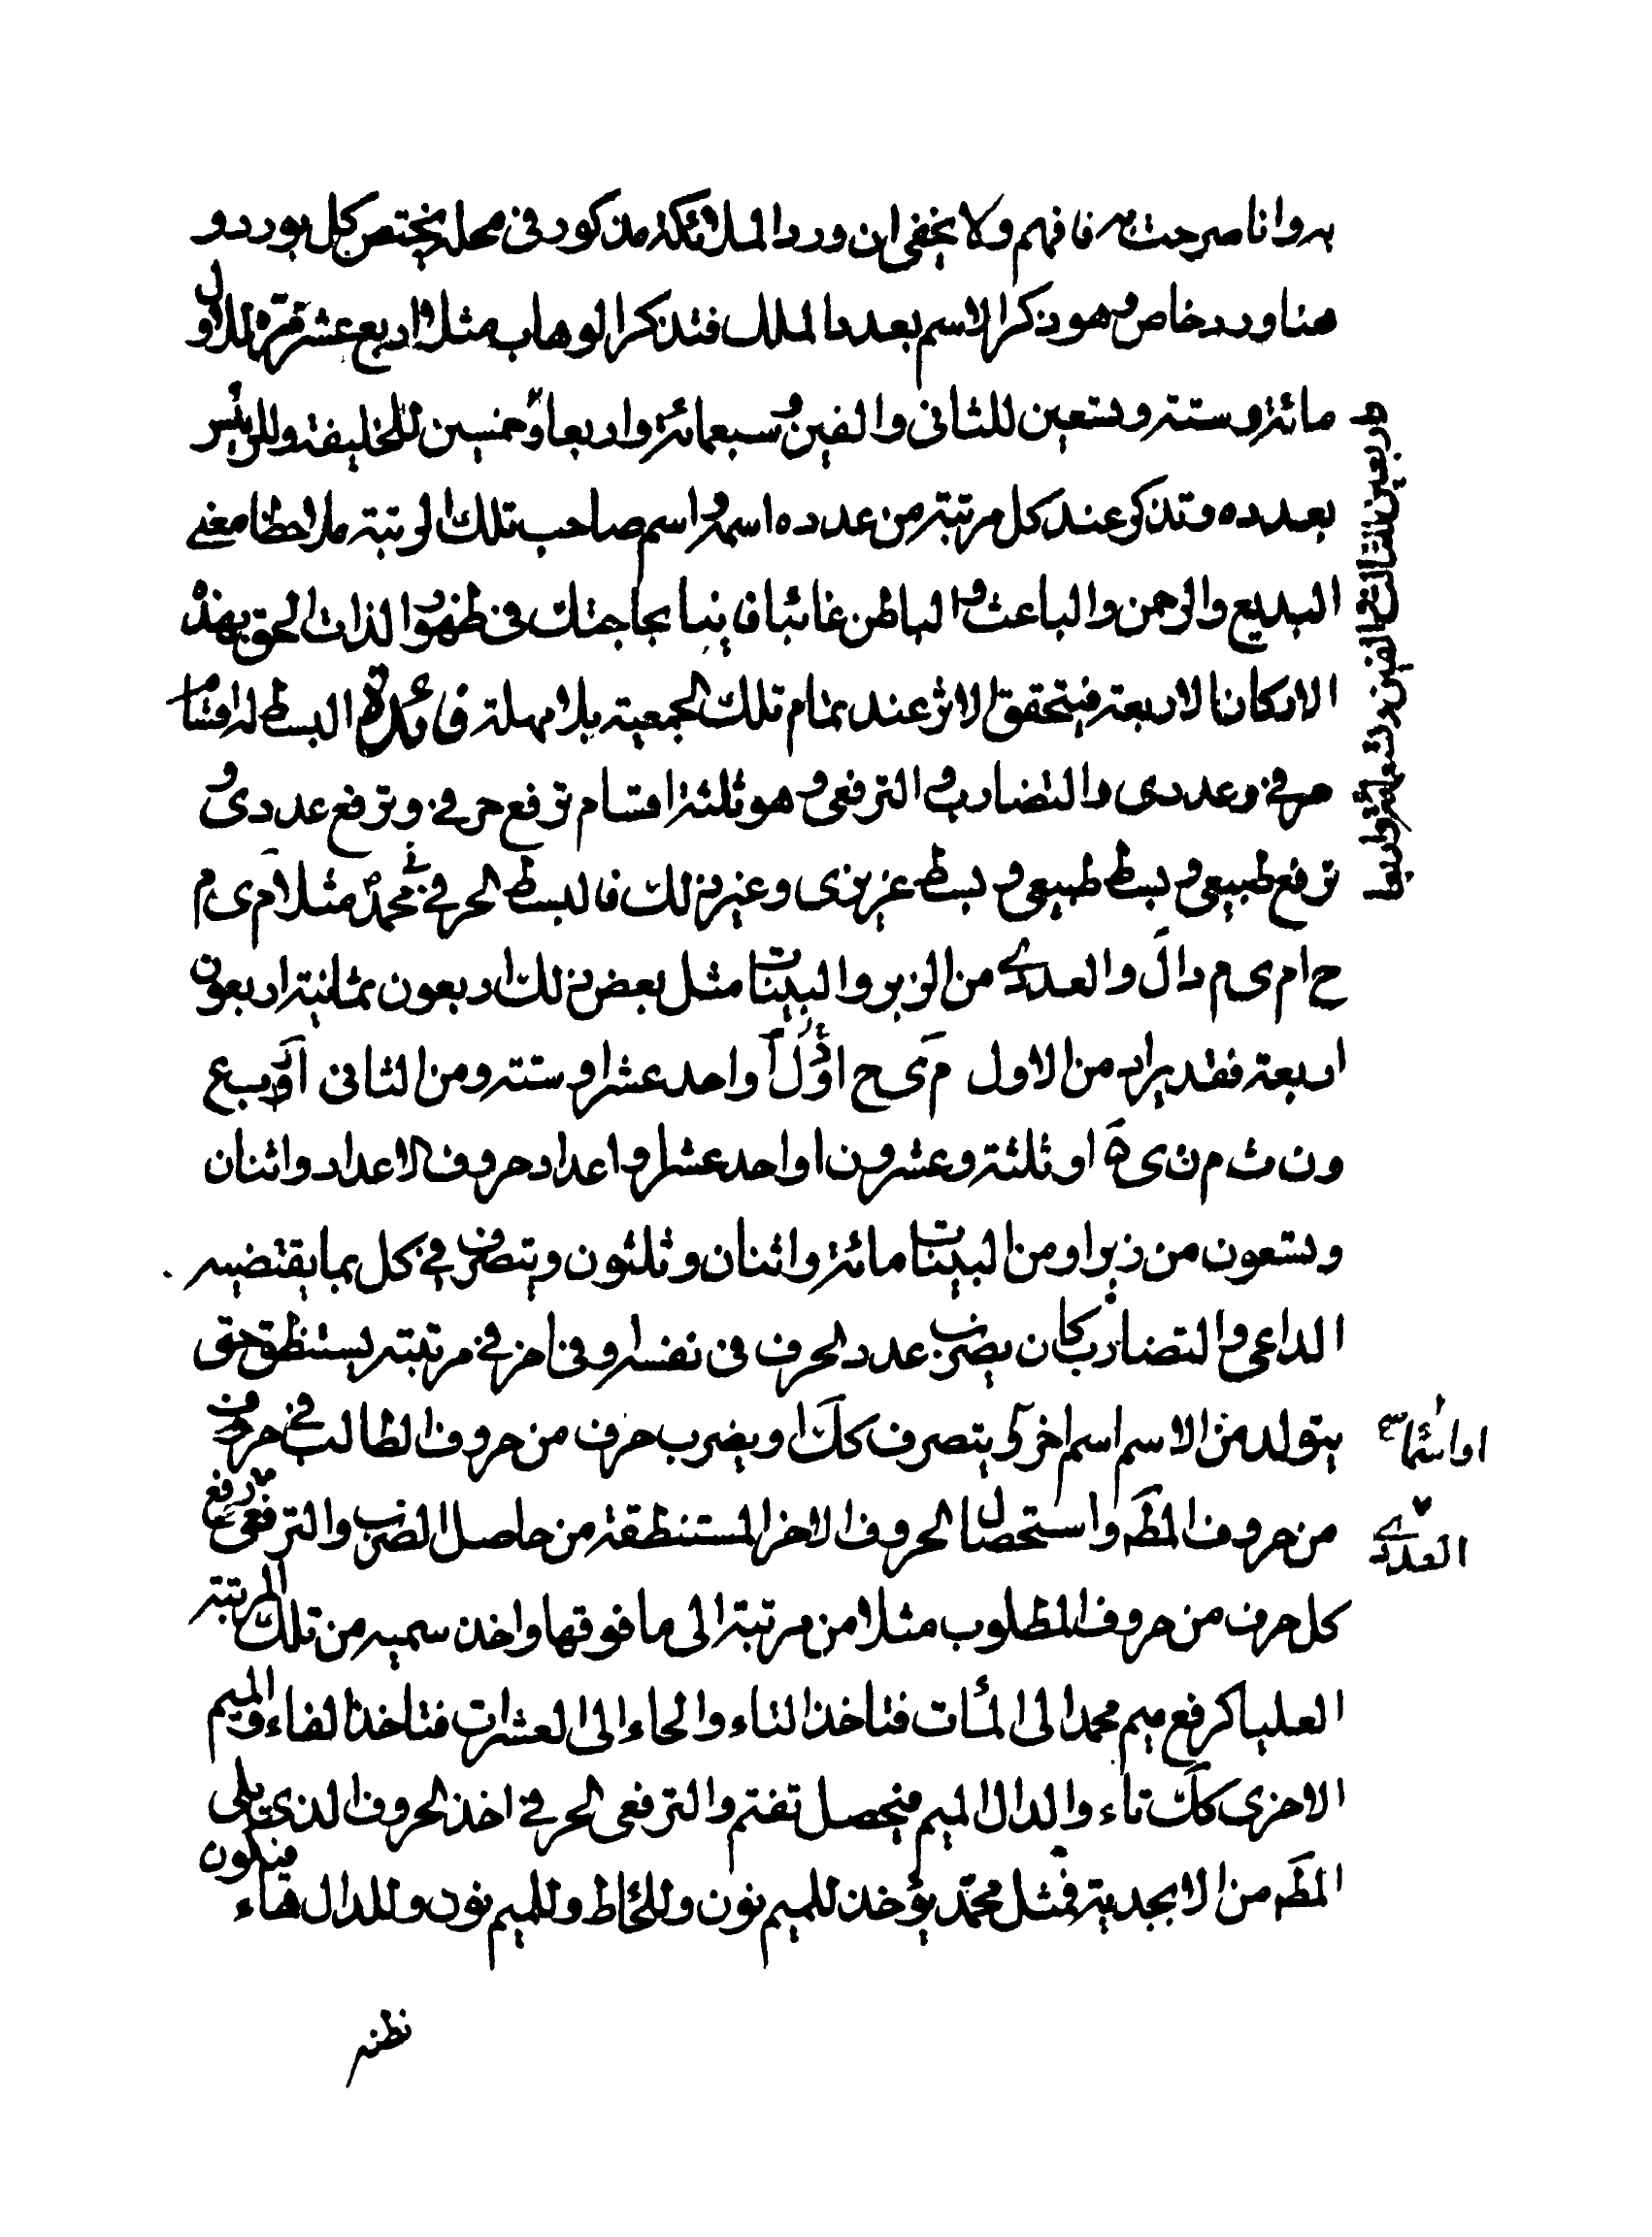 به وانا صرحت به فافهم ولا يخفى ان ورد الملائكة مذكور فى محله يختص كل بورد و
هنا ورد خاص وهو ذكر الاسم بعدد الملك فتذكر الوهاب مثلا اربع عشر مرة للاول
مائة وستة وتسعين للثانى والفين وسبعمائة واربعا وخمسين للخليفة وللرئيس
بعدده وتذكر عند كل مرتبة من عدده اسمه واسم صاحب تلك الرتبة ملاحظا معنى
البديع والرحمن والباعث والباطن غائبا فانيا بحاجتك فى ظهور الذات الحق بهذه
الاركان الاربعة فيتحقق الاثر عند تمام تلك الجمعية بلا مهلة فائدة البسط له اقسام
حرفى وعددى والتضارب والترفعى وهو ثلثة اقسام ترفع حرفى وترفع عددى و
ترفع طبيعى وبسط طبيعى وبسط عزيزى وغير ذلك فالبسط الحرفى فى محمد مثلا م ى م
ح ا م ى م دال والعددى من الزبر والبينات مثل بعض ذلك اربعون ثمانية اربعون
اربعة فقد يراد من الاول م ى ح ا و ل ا واحد عشر او ستة ومن الثانى ا ر ب ع
و ن ث م ن ى ه او ثلثة وعشرون او احد عشر او اعداد حروف الاعداد واثنان
وتسعون من زبر او من البينات مائة واثنان وثلثون ويتصرف فى كل بما يقتضيه
الداعى والتضارب كان يضرب عدد الحرف فى نفسه او فى اخر فى مرتبته يستنطق حتى
يتولد من الاسم اسم اخر كى يتصرف كك او يضرب حرف من حروف الطالب فى حرف
من حروف المطه واستحصال الحروف الاخر المستنطقة من حاصل الضرب والترفعى رفع
كل حرف من حروف المطلوب مثلا من مرتبة الى ما فوقها واخذ سميه من تلك المرتبة
العليا كرفع ميم محمد الى المئات فتاخذ التاء والحاء الى العشرات فتاخذ الفاء والميم
الاخرى كك تاء والدال الميم فيحصل تفتم والترفعى الحرفى اخذ الحروف الذى يلى
المطه من الابجدية فمثل محمد يؤخذ للميم نون وللحاء ط وللميم نون وللدال هاء فيكون
او استماسے
العددى